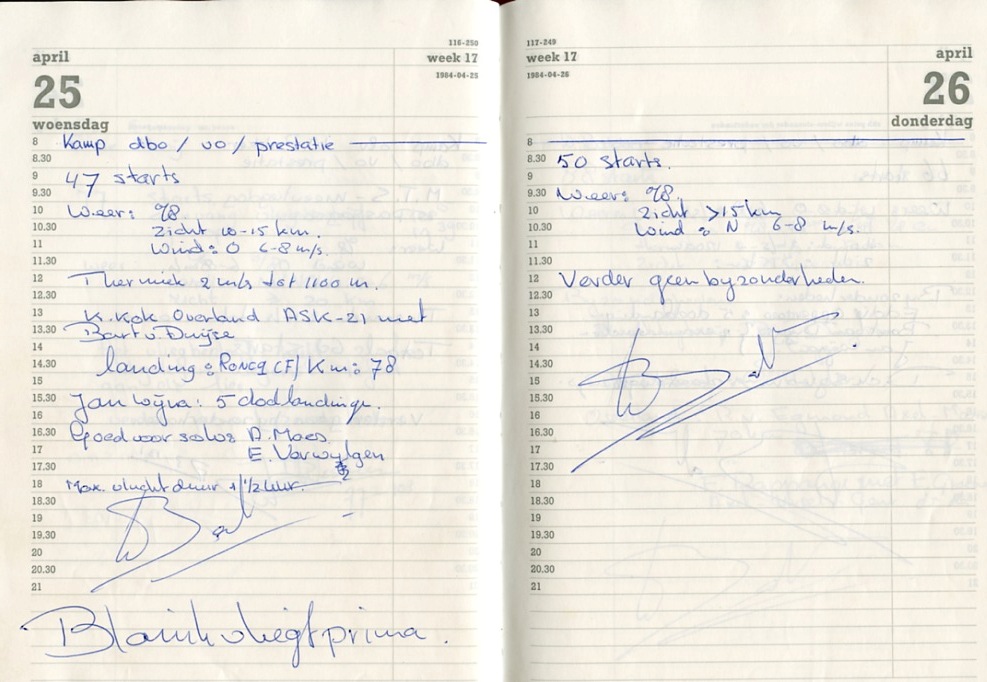 116-250
april
week 17
25
1984-04-25
woensdag
8 Kamp dbo / vo / prestatie
8.30
9 47 starts
9.30
10 Weer: 7/8
10.30 Zicht 10-15 km.
11 Wind: O 6-8 m/s.
11.30
12 Thermiek 2 m/s tot 1100 m.
12.30
13 K. Kok Overland ASK-21 met
13.30 Bart v. Dwijse
14
14.30 landing: RONCQ (F) Km: 78
15
15.30 Jan Wijva: 5 dodlandinge.
16
16.30 Goed voor solo: A. Maes
17 E. Verwijlgen
17.30
18 Max. vluchtduur + 1/2 uur.
18.30
19
19.30
20
20.30
21
Blanik vliegt prima.
117-249
week 17
april
1984-04-26
26
donderdag
8
8.30 50 starts.
9
9.30 Weer: 7/8.
10 Zicht >15 km
10.30 Wind: N 6-8 m/s.
11
11.30
12 Verder geen byzonderheden.
12.30
13
13.30
14
14.30
15
15.30
16
16.30
17
17.30
18
18.30
19
19.30
20
20.30
21